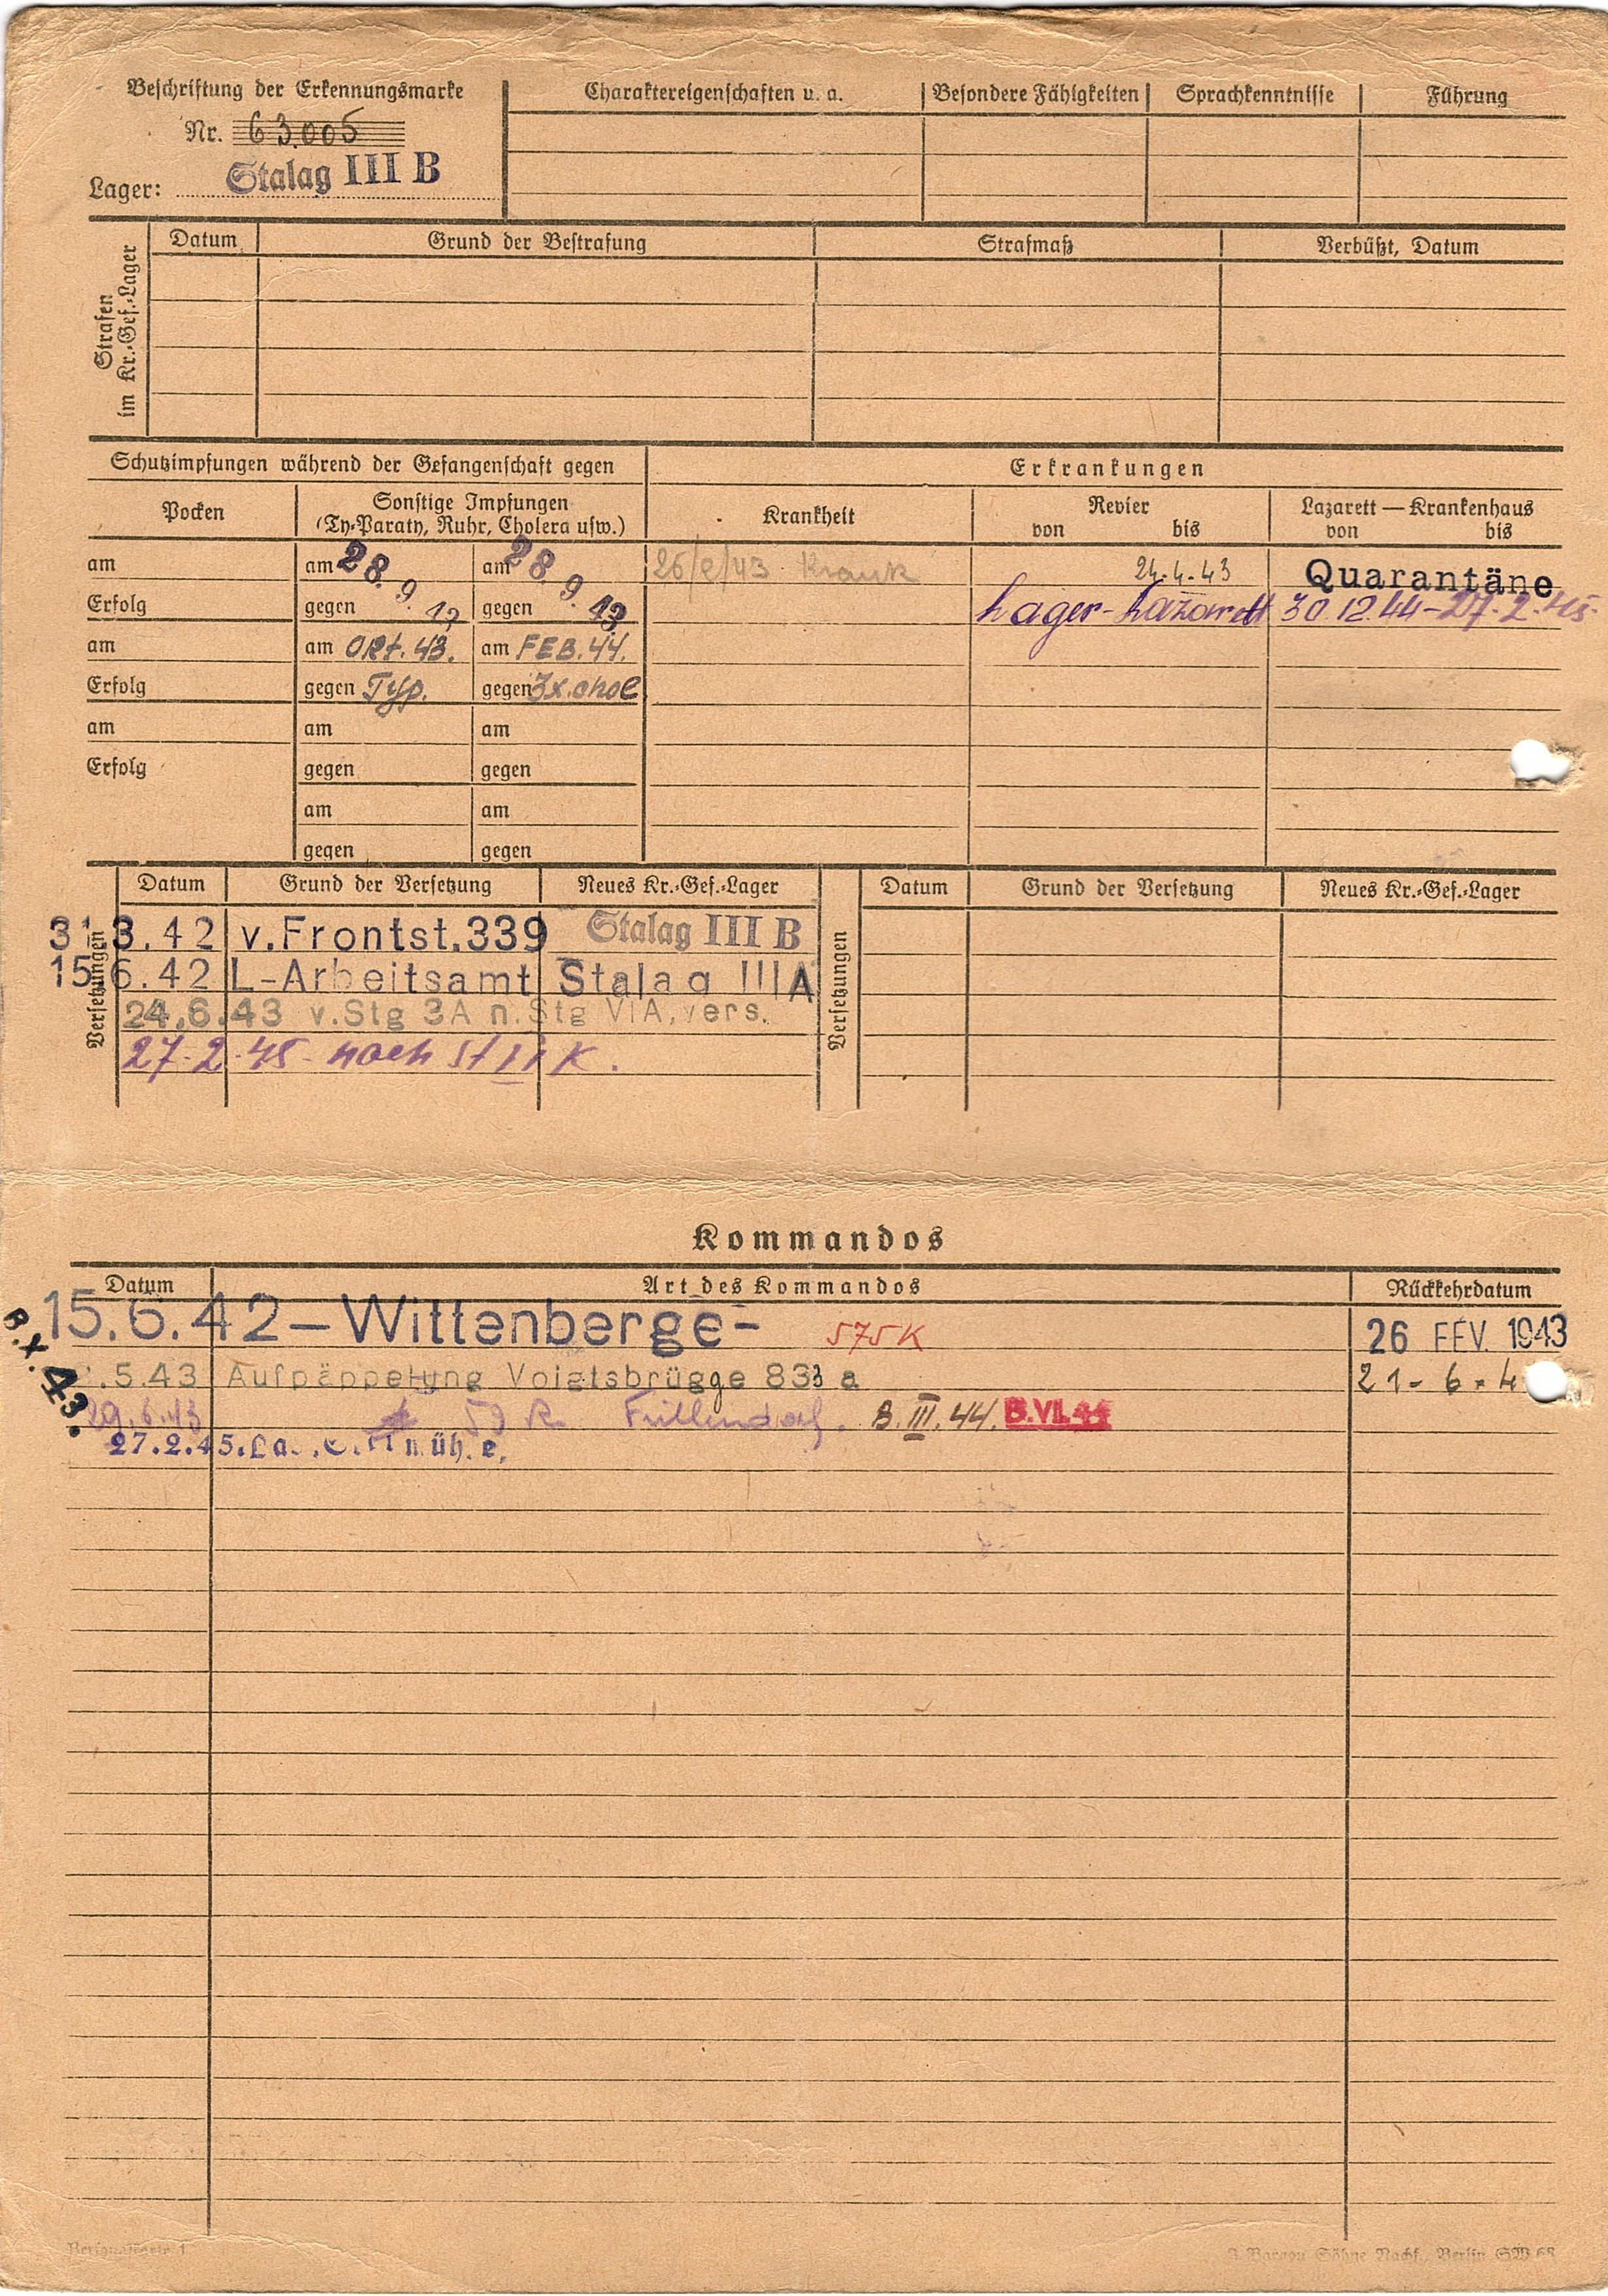 Beschriftung der Erkennungsmarke
Nr. 63.005
Lager: Stalag III B
Charaktereigenschaften u. a. Besondere Fähigkeiten Sprachkenntnisse Führung
Strafen im Kr.-Gef.-Lager
Datum Grund der Bestrafung Strafmaß Verbüßt, Datum
Schutzimpfungen während der Gefangenschaft gegen Erkrankungen
Pocken Sonstige Impfungen (Ty-Paraty, Ruhr, Cholera usw.) Krankheit Revier von bis Lazarett — Krankenhaus von bis
am am 28. 9. am 28. 9. 43 26/2/43 Krank 24.4.43 Quarantäne
Erfolg gegen gegen Lager-Lazarett 30.12.44-27.2.45
am am Okt. 43. am FEB. 44.
Erfolg gegen Typ. gegen 3x.chol
am am am
Erfolg gegen gegen
am am
gegen gegen
Versetzungen Datum Grund der Versetzung Neues Kr.-Gef.-Lager Versetzungen Datum Grund der Versetzung Neues Kr.-Gef.-Lager
31.3.42 v.Frontst.339 Stalag III B
15.6.42 L-Arbeitsamt Stalag III A
24.6.43 v.Stg 3A n.Stg VIA, vers.
27-2-45- nach St
Kommandos
Datum Art des Kommandos Rückkehrdatum
15.6.42 — Wittenberge- 575K 26 FÉV. 1943
B. X. 43.
.5.43 Aufpäppelung Voigtsbrügge 833 a 21-6-4
29.6.43 Frillendorf. B.III.44. B.VII.44
27.2.45.
Personalkarte 1
Berlin SW 68